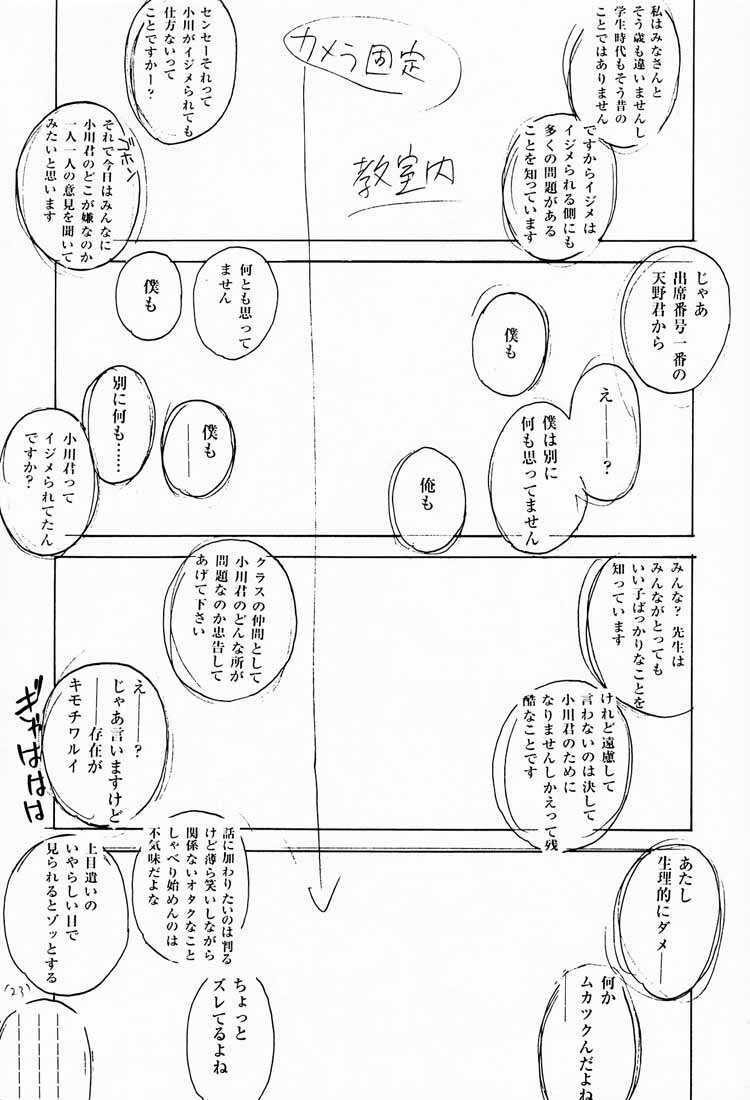 私はみなさんと
そう歳も違いませんし
学生時代もそう昔の
ことではありません
ですからイジメは
イジメられる側にも
多くの問題がある
ことを知っています
カメラ固定
教室内
センセーそれって
小川がイジメられても
仕方ないって
ことですかー？
それで今日はみんなに
小川君のどこが嫌なのか
一人一人の意見を聞いて
みたいと思います
じゃあ
出席番号一番の
天野君から
え――――？
僕は別に
何も思ってません
僕も
俺も
何とも思って
ません
僕も
僕も
――
別に何も……
小川君って
イジメられてたん
ですか？
みんな？先生は
みんながとっても
いい子ばっかりなことを
知っています
けれど遠慮して
言わないのは決して
小川君のために
なりませんしかえって残
酷なことです
クラスの仲間として
小川君のどんな所が
問題なのか忠告して
あげて下さい
え――――？
じゃあ言いますけど
――存在が
キモチワルイ
ギャははは
あたし
生理的にダメ―
何か
ムカツクんだよね
――
話に加わりたいのは判る
けど薄ら笑いしながら
関係ないオタクなこと
しゃべり始めんのは
不気味だよな
ちょっと
ズレてるよね
上目遣いの
いやらしい目で
見られるとゾッとする
(23)